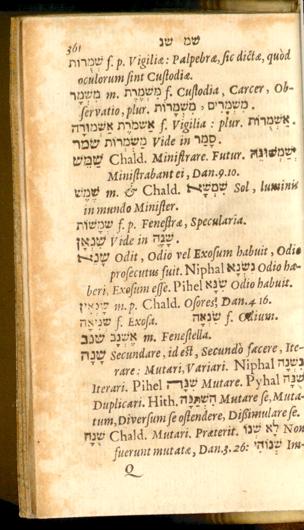 שמ שנ
361
שְׁמֻרוֹת f. p. Vigiliæ: Palpebræ, sic dictæ, quòd
oculorum sint Custodiæ.
מִשְׁמָר m. מִשְׁמֶרֶת f. Custodia, Carcer, Ob-
servatio, plur. מִשְׁמָרִים, מִשְׁמָרוֹת.
אַשְׁמֹרֶת אַשְׁמוּרָה f. Vigilia: plur. אַשְׁמֻרוֹת.
שמר מַשְׂמְרוֹת Vide in סָמַר.
שַׁמֵּשׁ Chald. Ministrare. Futur. יְשַׁמְּשׁוּנֵּהּ
Ministrabant ei, Dan. 7. 10.
שֶׁמֶשׁ m. & Chald. שִׁמְשָׁא Sol, luminis
in mundo Minister.
שְׁמָשׁוֹת f. p. Fenestræ, Specularia.
שִׁנְאָן Vide in שָׁנָה.
שָׂנֵא Odit, Odio vel Exosum habuit, Odio
prosecutus fuit. Niphal נִשְׂנָא Odio ha-
beri. Exosum esse. Pihel שִׂנֵּא Odio habuit.
שָׂנְאִין m. p. Chald. Osores, Dan. 4. 16.
שְׂנִיאָה f. Exosa. שִׂנְאָה f. Odium.
שנב אֶשְׁנָב m. Fenestella.
שָׁנָה Secundare, id est, Secundò facere, Ite-
rare: Mutari, Variari. Niphal נִשְׁנָה
Iterari. Pihel שִׁנָּה Mutare. Pyhal שֻׁנָּה
Duplicari. Hith. הִשְׁתַּנָּה Mutare se, Muta-
tum, Diversum se ostendere, Dissimulare se.
שְׁנָה Chald. Mutari. Præterit. לָא שְׁנוֹ Non
fuerunt mutatæ, Dan. 3. 26: שְׁנוֹהִי Im-
Q